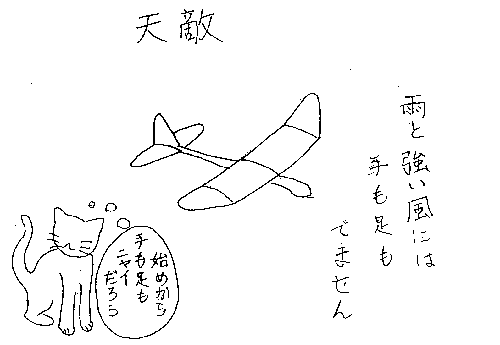 天敵
雨と強い風には
手も足も
でません
始めから
手も足も
ニャイ
だろう